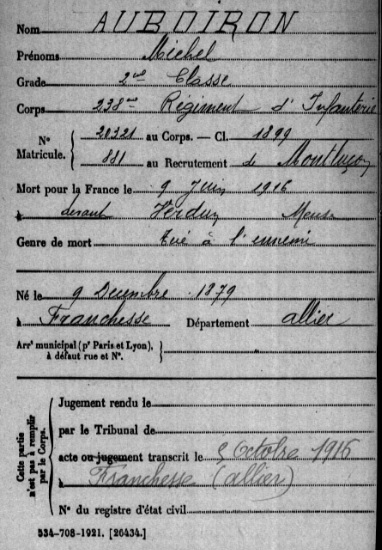 Nom AUBOIRON
Prénoms Michel
Grade 2me Classe
Corps 238me Régiment d'Infanterie
N° Matricule. { 20321 au Corps. — Cl. 1899
881 au Recrutement de Montluçon
Mort pour la France le 9 Juin 1916
à devant Verdun Meuse
Genre de mort Tué à l'ennemi
Né le 9 Decembre 1879
à Franchesse Département allier
Arrt municipal (pr Paris et Lyon), à défaut rue et N°.
Cette partie n'est pas à remplir par le Corps.
Jugement rendu le
par le Tribunal de
acte ou jugement transcrit le 5 Octobre 1916
à Franchesse (allier)
N° du registre d'état civil
534-708-1921. [26434.]